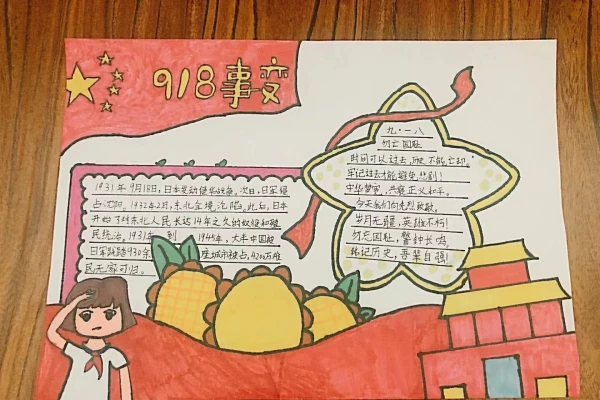 918事变
1931年9月18日,日本发动侵华战争。次日,日军侵
占沈阳。1932年2月,东北全境沦陷。此后,日本
开始了对东北人民长达14年之久的奴役和殖
民统治。1931年 到 1945年,大半中国被
日军践踏930余 座城市被占,4200万难
民无家可归。
九·一八
勿忘国耻
时间可以过去,历史不能忘却。
牢记过去才能避免悲剧!
中华梦寄,共襄正义和平。
今天我们向先烈致敬,
岁月无疆,英雄不朽!
勿忘国耻,警钟长鸣,
铭记历史,吾辈自强!